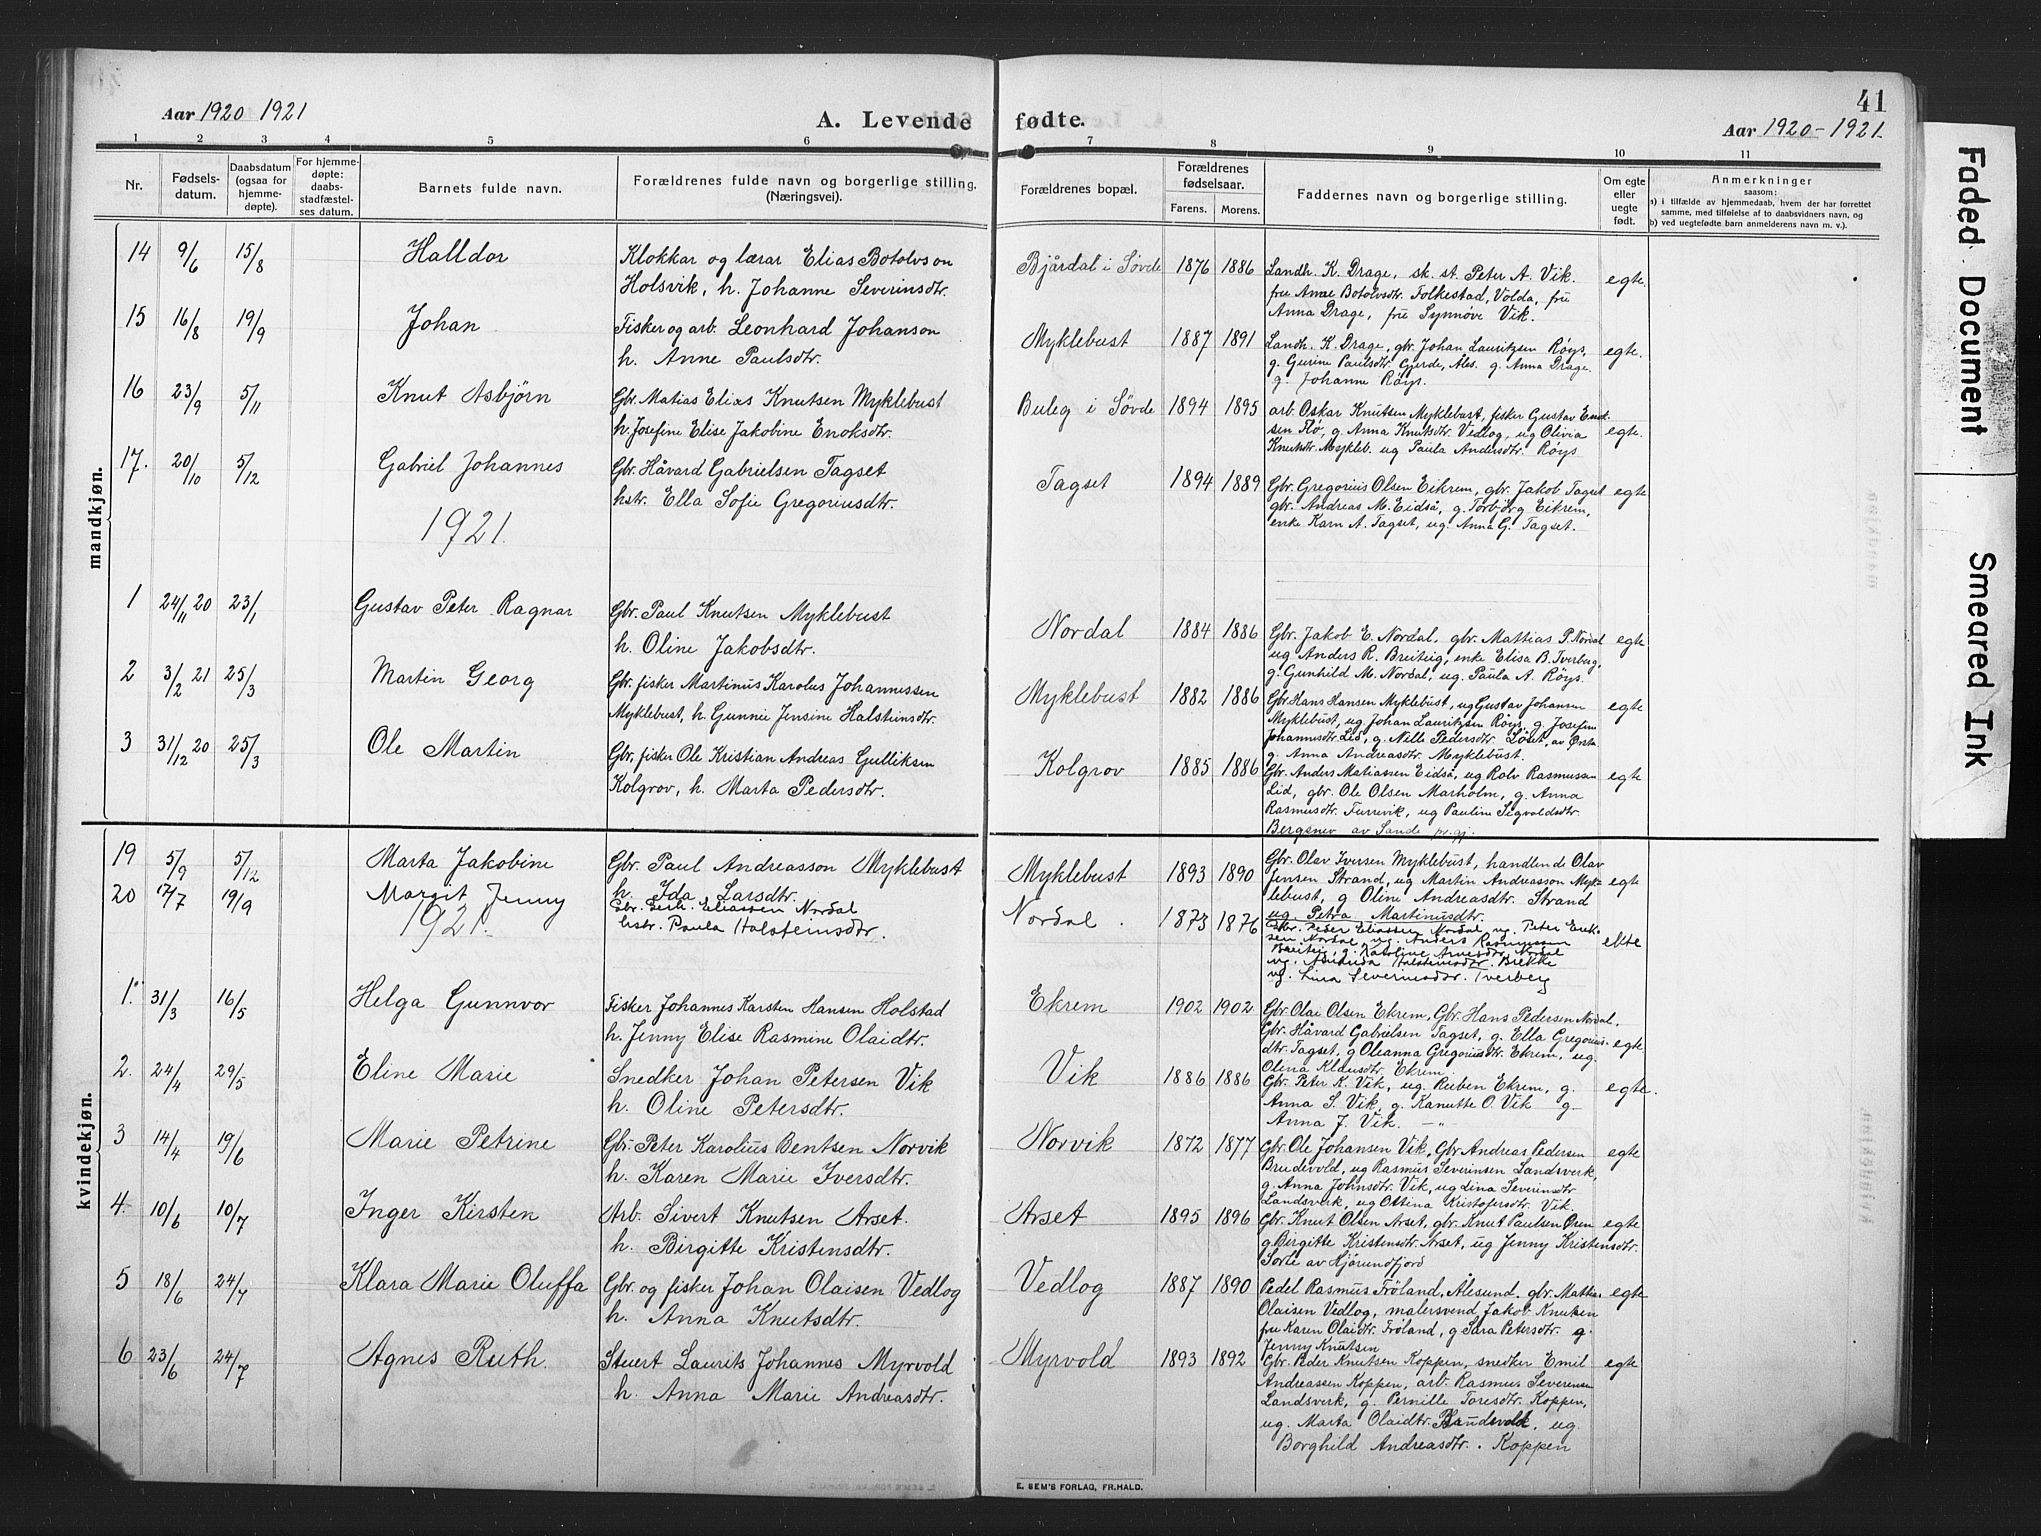 Aar 1920 1921
A. Levende fødte.
41
Aar 1920-1921
1 2 3 4 5 6 7 8 9 10 11
Nr.
Fødsels-
datum.
Daabsdatum
(ogsaa for
hjemme-
døpte).
For hjemme-
døpte:
daabs-
stadfæstel-
ses datum.
Barnets fulde navn.
Forældrenes fulde navn og borgerlige stilling.
(Næringsvei).
Forældrenes bopæl.
Forældrenes
fødselsaar.
Farens. Morens.
Faddernes navn og borgerlige stilling.
Om egte
eller
uegte
født.
Anmerkninger
saasom:
a) i tilfælde av hjemmedaab, hvem der har forrettet
samme, med tilføielse af to daabsvidners navn, og
b) ved uegtefødte barn anmelderens navn m. v.).
mandkjøn.
14 9/6 15/8 Halldor
Klokkar og lærar Elias Botolvson
Holsvik, h. Johanne Severinsdtr.
Bjårdal i Søvde 1876 1886
Landh. K. Drage, sk. st. Peter A. Vik.
fru Anne Botolvsdtr. Folkestad, Volda, fru
Anna Drage, fru Synnøve Vik.
egte.
15 16/8 19/9 Johan
Fisker og arb. Leonhard Johanson
h. Anne Paulsdtr.
Myklebust 1887 1891
Landh. K. Drage, gbr. Johan Lauritzen Røys,
g. Gurine Paulsdtr. Gjerde, Ales. g. Anna Drage.
g. Johanne Røys.
egte.
16 23/9 5/11 Knut Asbjørn
Gbr. Matias Elias Knutsen Myklebust
h. Josefine Elise Jakobine Enoksdtr.
Buleg i Søvde 1894 1895
arb. Oskar Knutsen Myklebust, fisker Gustav Enok-
sen Flø, g. Anna Knutsdtr. Vedlog, ug Olivia
Knutsdtr. Mykleb. ug Paula Andersdtr. Røys
egte.
17. 20/10 5/12 Gabriel Johannes
Gbr. Håvard Gabrielsen Tagset
hstr. Ella Sofie Gregoriusdtr.
Tagset 1894 1889
Gbr. Gregorius Olsen Eikrem, gbr. Jakob Tagset
gbr. Andreas M. Eidså, g. Torbjørg Eikrem,
enke Karn A. Tagset, ug Anna G. Tagset.
egte
1921.
1 24/11 20 23/1 Gustav Peter Ragnar
Gbr. Paul Knutsen Myklebust
h. Oline Jakobsdtr.
Nordal 1884 1886
Gbr. Jakob E. Nordal, gbr. Mattias P. Nordal
ug Anders R. Breiteig, enke Elisa B. Tverberg,
g. Gunhild M. Nordal, ug. Paula A. Røys.
egte
2 3/2 21 25/3 Martin Georg
Gbr. fisker Martinus Karolus Johannessen
Myklebust, h. Gunnie Jensine Halsteinsdtr.
Myklebust 1882 1886
Gbr Hans Hansen Myklebust, ug Gustav Johansen
Myklebust, ug Johan Lauritzen Røys, g. Josefine
Johannesdtr Lid, g. Nille Pedersdtr. Løset, av Ørsta
g. Anna Andreasdtr. Myklebust.
egte
3 31/12 20 25/3 Ole Martin
Gbr, fisker Ole Kristian Andreas Gulliksen
Kolgrov, h. Marta Pedersdtr.
Kolgrov 1885 1886
Gbr. Anders Matiassen Eidså, ug Rolv Rasmussen
Lid, gbr. Ole Olsen Marholm, g. Anna
Rasmusdtr. Furrevik, ug Pauline Sigvoldsdtr.
Bergsnev av Sande pr.gj.
egte
kvindekjøn.
19 5/9 5/12 Marta Jakobine
Gbr. Paul Andreasson Myklebust
h. Ida Larsdtr.
Myklebust 1893 1890
Gbr. Olav Iversen Myklebust, handlende Olav
Jensen Strand, ug Martin Andreasson Myk-
lebust, g Oline Andreasdtr. Strand
ug. Petra Martinusdtr.
egte
20 17/7 19/9 Margit Jenny
Eliassen Nordal
hstr. Paula Halsteinsdtr.
Nordal. 1873 1876
Gbr. Peder Eliassen Nordal, ug. Peter Erik-
sen Nordal, ug. Anders Rasmussen
Breiteig, g. Karoline Arnesdtr. Nordal
ug. Halsteinsdtr. Brekke
ug. Lina Severinsdtr. Tverberg
ekte
1921.
1. 31/3 16/5 Helga Gunnvor
Fisker Johannes Karsten Hansen Holstad
h. Jenny Elise Rasmine Olaidtr.
Ekrem 1902 1902
Gbr Olai Olsen Ekrem, Gbr. Hans Pedersen Nordal,
Gbr. Håvard Gabrielsen Tagset, g. Ella Gregorius-
dtr. Tagset, g Oleanna Gregoriusdtr. Ekrem, ug.
Olina Klausdtr. Ekrem
egte
2. 24/4 29/5 Eline Marie
Snedker Johan Petersen Vik
h. Oline Petersdtr.
Vik 1886 1886
Gbr. Peter K. Vik, ug. Ruben Ekrem, g.
Anna S. Vik, g. Kanutte O. Vik g.
Anna J. Vik. -"-
egte.
3 14/4 19/6 Marie Petrine
Gbr. Peter Karolius Bentsen Norvik
h. Karen Marie Iversdtr.
Norvik 1872 1877
Gbr. Ole Johansen Vik, Gbr. Andreas Pedersen
Brudevold, ug Rasmus Severinsen Landsverk,
g. Anna Johnsdtr. Vik, ug Lina Severinsdtr
Landsverk, ug Ottina Kristofersdtr. Vik.
egte
4. 10/6 10/7 Inger Kirsten
Arb. Sivert Knutsen Arset.
h. Birgitte Kristensdtr.
Arset 1895 1896
Gbr. Knut Olsen Arset, gbr. Knut Paulsen Øren
g Birgitte Kristensdtr. Arset, ug Jenny Kristensdtr.
Sorte av Hjørundfjord
egte
5 18/6 24/7 Klara Marie Oluffa
Gbr. og fisker Johan Olaisen Vedlog
h. Anna Knutsdtr.
Vedlog 1887 1890
Pedel Rasmus Frøland, Ålesund, gbr. Mattias
Olaisen Vedlog, malersvend Jakob Knutsen
fru Karen Olaidtr. Frøland, g Sara Petersdtr. g.
Jenny Knutsen
egte
6 23/6 24/7 Agnes Ruth.
Stuert Laurits Johannes Myrvold
h. Anna Marie Andreasdtr.
Myrvold 1893 1892
Gbr. Peder Knutsen Koppen, snedker Emil
Andreassen Koppen, arb. Rasmus Severinsen
Landsverk, g. Pernille Toresdtr. Koppen,
ug. Marta Olaidtr. ug.
Borghild Andreasdtr. Koppen
egte
E. SEM'S FORLAG, FR.HALD.
Faded Document
Smeared Ink